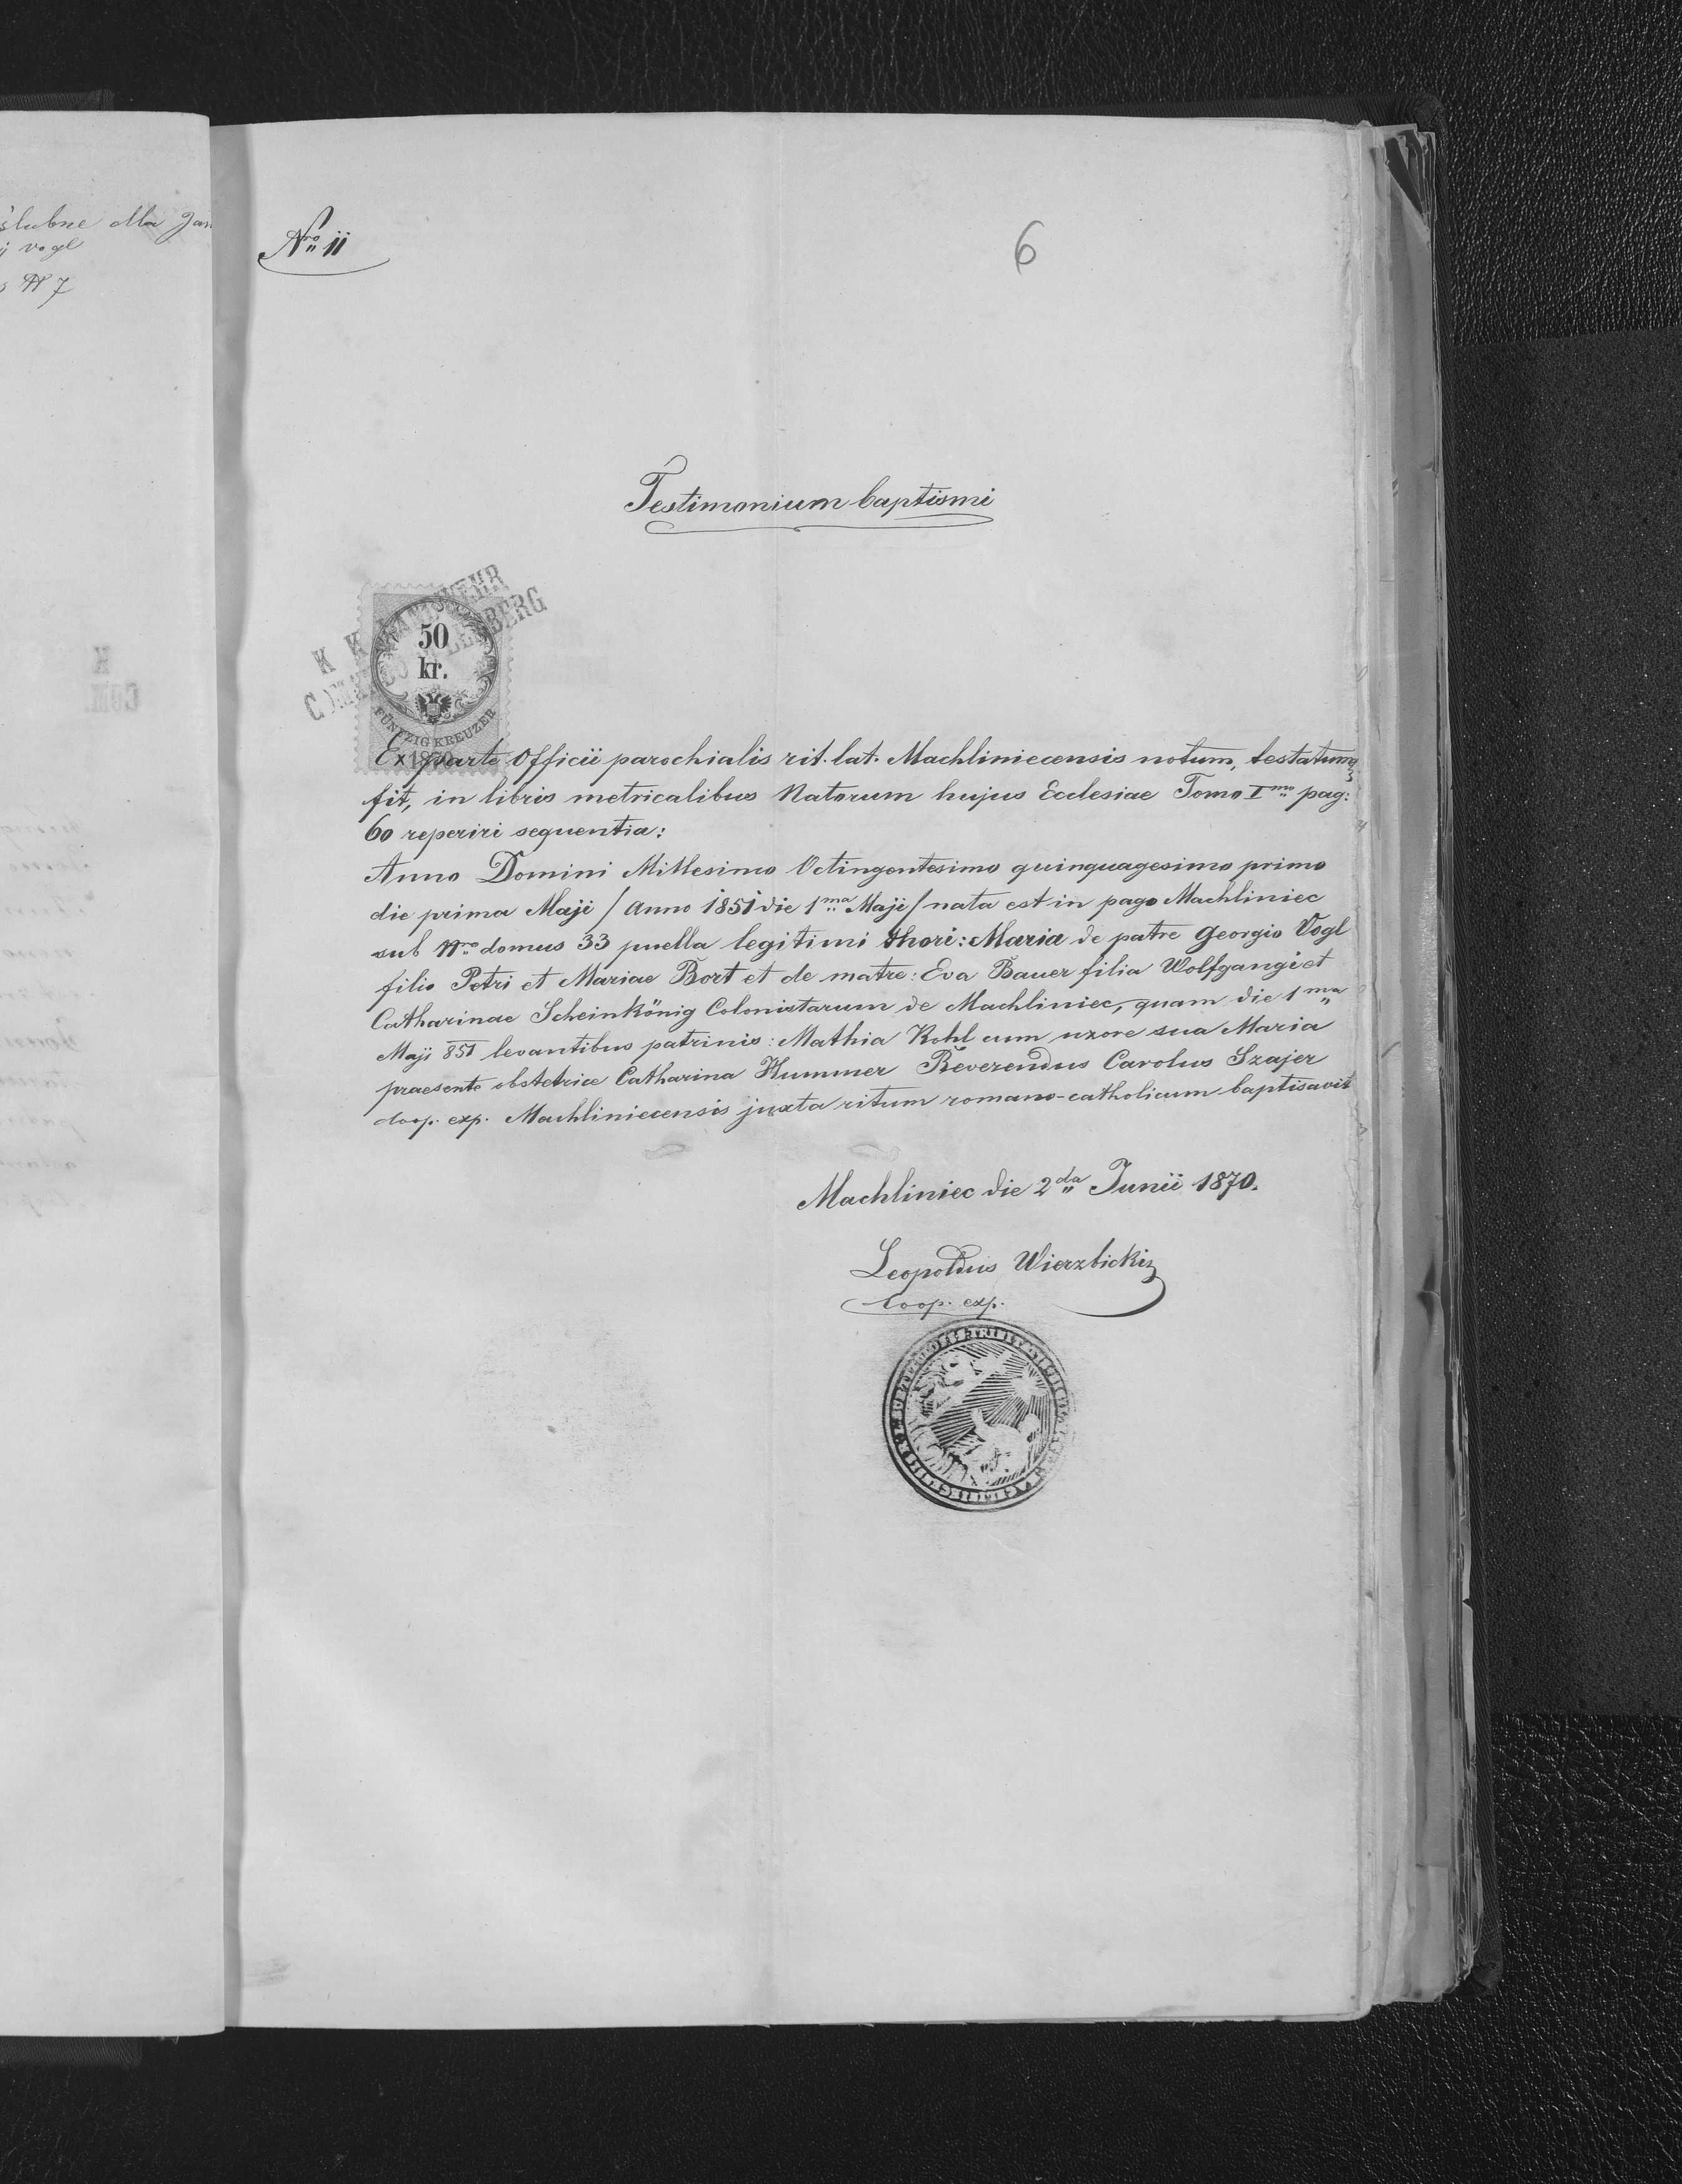 ślubne dla Jan
j Vogl
N 7
Nro 11
6
Testimonium baptismi
K K LANDWEHR
COMMANDO LEMBERG
50
kr.
FÜNFZIG KREUZER
1870
Ex parte Officii parochialis rit. lat. Machliniecensis notum, testatumq
fit, in libris metricalibus Natorum hujus Ecclesiae Tomo Imo pag:
60 reperiri sequentia:
Anno Domini Millesimo Octingentesimo quinquagesimo primo
die prima Maji / Anno 1851 die 1ma Maji / nata est in pago Machliniec
sub Nro domus 33 puella legitimi thori: Maria de patre Georgio Vogl
filio Petri et Mariae Bort et de matre: Eva Bauer filia Wolfgangi et
Catharinae Scheinkönig Colonistarum de Machliniec, quam die 1ma
Maji 851 levantibus patrinis: Mathia Kohl cum uxore sua Maria
praesente obstetrice Catharina Hummer Reverendus Carolus Szajer
Coop. exp. Machliniecensis juxta ritum romano-catholicum baptisavit
Machliniec die 2da Junii 1870.
Leopoldus Wierzbicki
Coop. exp.